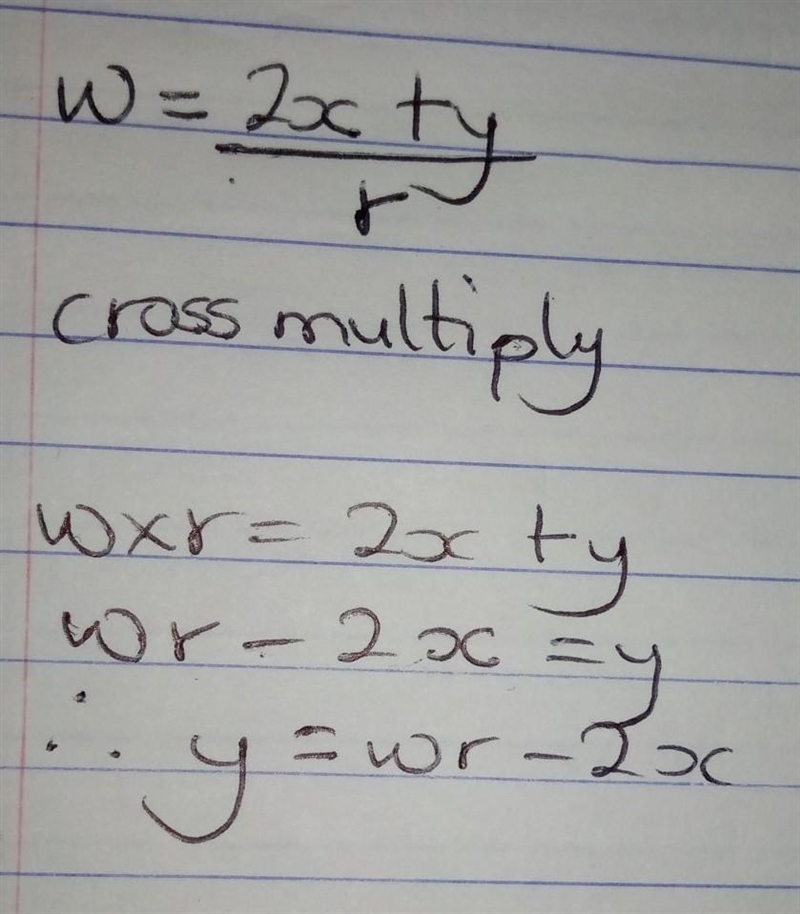 w = 2x + y
r
cross multiply
w x r = 2x + y
wr - 2x = y
∴ y = wr - 2x